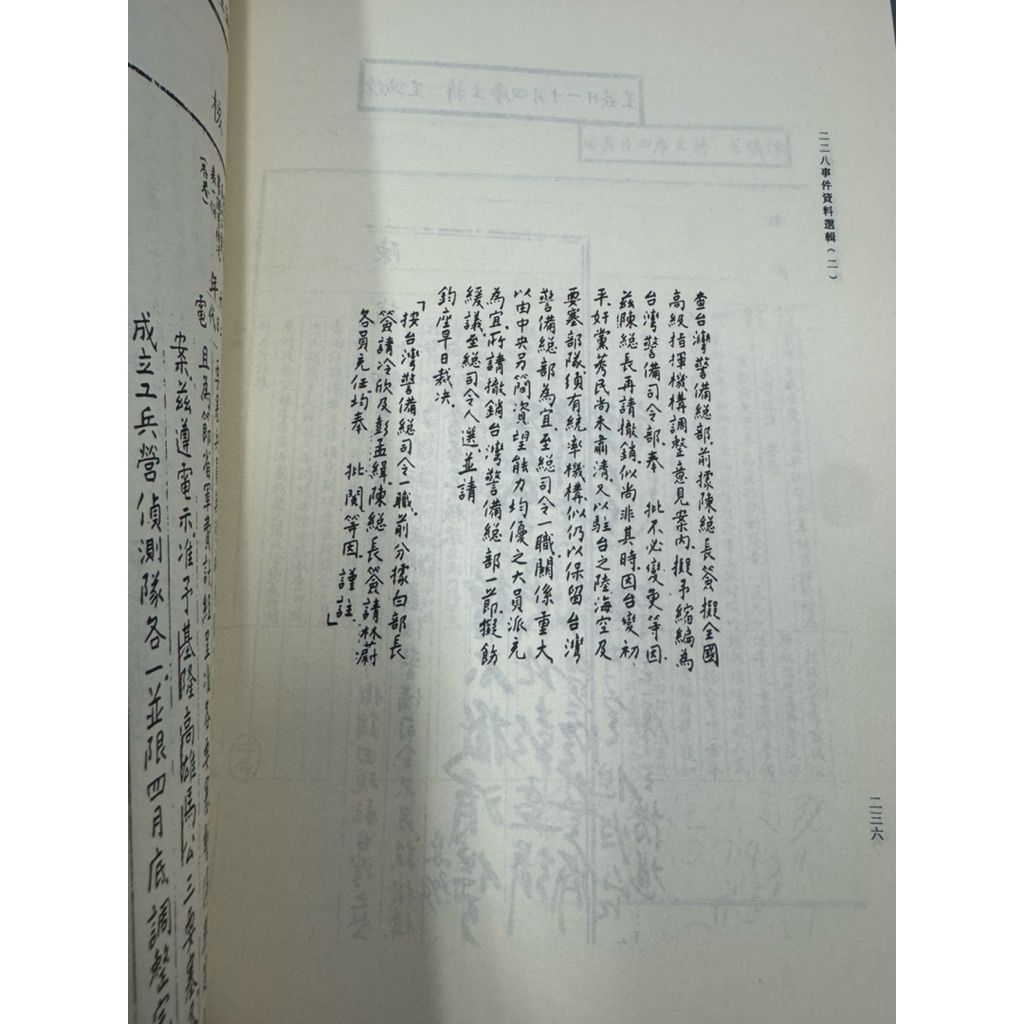 二二八事件資料選輯(二)
查台灣警備總部,前據陳總長簽擬全國
高級指揮機構調整意見案內,擬予縮編為
台灣警備司令部,奉 批不必變更等因,
茲陳總長再請撤銷似尚非其時,因台變初
平,奸黨莠民尚未肅清,又以駐台之陸海空及
要塞部隊須有統率機構似仍以保留台灣
警備總部為宜,至總司令一職關係重大,
以由中央另簡資望能力均優之大員派充
為宜,所請撤銷台灣警備總部一節,擬飭
緩議,至總司令人選,並請
鈞座早日裁決,
「按台灣警備總司令一職,前分據白部長
簽請冷欣及彭孟緝,陳總長簽請林蔚
各員充任,均奉 批閱等因,謹註」
二三六
電
案,茲遵電示,准予基隆高雄馬公三要塞
成立工兵營偵測隊各一,並限四月底調整完